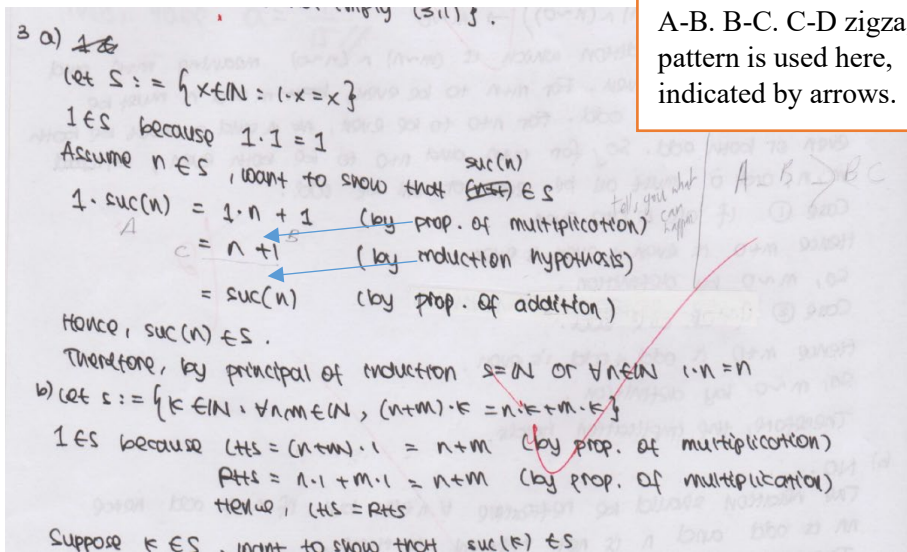 imply (3,1)}.
A-B. B-C. C-D zigza
pattern is used here,
indicated by arrows.
3 a)
Let S := {x∈ℕ = 1·x = x}
1∈S because 1·1 = 1
Assume n∈S, want to show that suc(n) ∈ S
1·suc(n) = 1·n + 1 (by prop. of multiplication)
= n + 1 (by induction hypothesis)
= suc(n) (by prop. of addition)
tells you what can happen
A B > B C
A
B
C
Hence, suc(n) ∈ S.
Therefore, by principal of induction S=ℕ or ∀n∈ℕ 1·n = n
b) Let S := {K∈ℕ · ∀n,m∈ℕ, (n+m)·K = n·K + m·K}
1∈S because LHS = (n+m)·1 = n+m (by prop. of multiplication)
RHS = n·1 + m·1 = n+m (by prop. of multiplication)
Hence, LHS = RHS
Suppose K∈S, want to show that suc(K) ∈ S